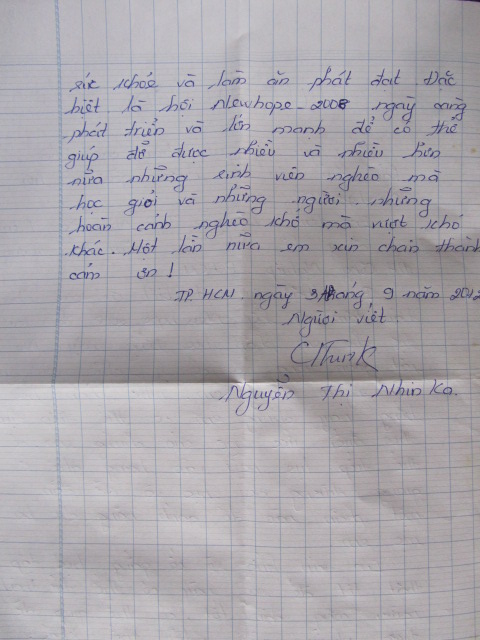 sức khoẻ và làm ăn phát đạt. Đặc
biệt là hội Newhope-2008 ngày càng
phát triển và lớn mạnh để có thể
giúp đỡ được nhiều và nhiều hơn
nữa những sinh viên nghèo mà
học giỏi và những người. những
hoàn cảnh nghèo khó mà vượt khó
khác. Một lần nữa em xin chân thành
cám ơn!
TP. HCM. ngày tháng 9 năm 2012
Người viết
Nguyễn Thị Nhin Ka